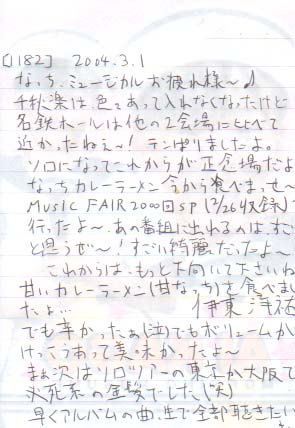 [1182] 2004.3.1
なっち、ミュージカルお疲れ様〜♪
千秋楽は色々あって入れなくなったけど
名鉄ホールは他の2会場に比べて
近かったねぇ〜! テンぱりましたよ。
ソロになってこれからが正念場だよ
なっちカレーラーメン今から食べませ〜
MUSIC FAIR 2000回SP (2/26収録)
行ったよ〜、あの番組に出れるのは、すご
と思うぜ〜! すごい綺麗だったよ〜
これからは、もっと 向いて下さいね
甘いカレーラーメン(甘なっち)を食べまし
たよ… 伊東洋祐
でも辛かったぁ(泣)でもボリュームか
けっこうあって美味かったよ〜
まぁ次はソロツアーの東京か大阪で
必死系の金髪でした(笑)
早くアルバムの曲、生で全部聴きたい